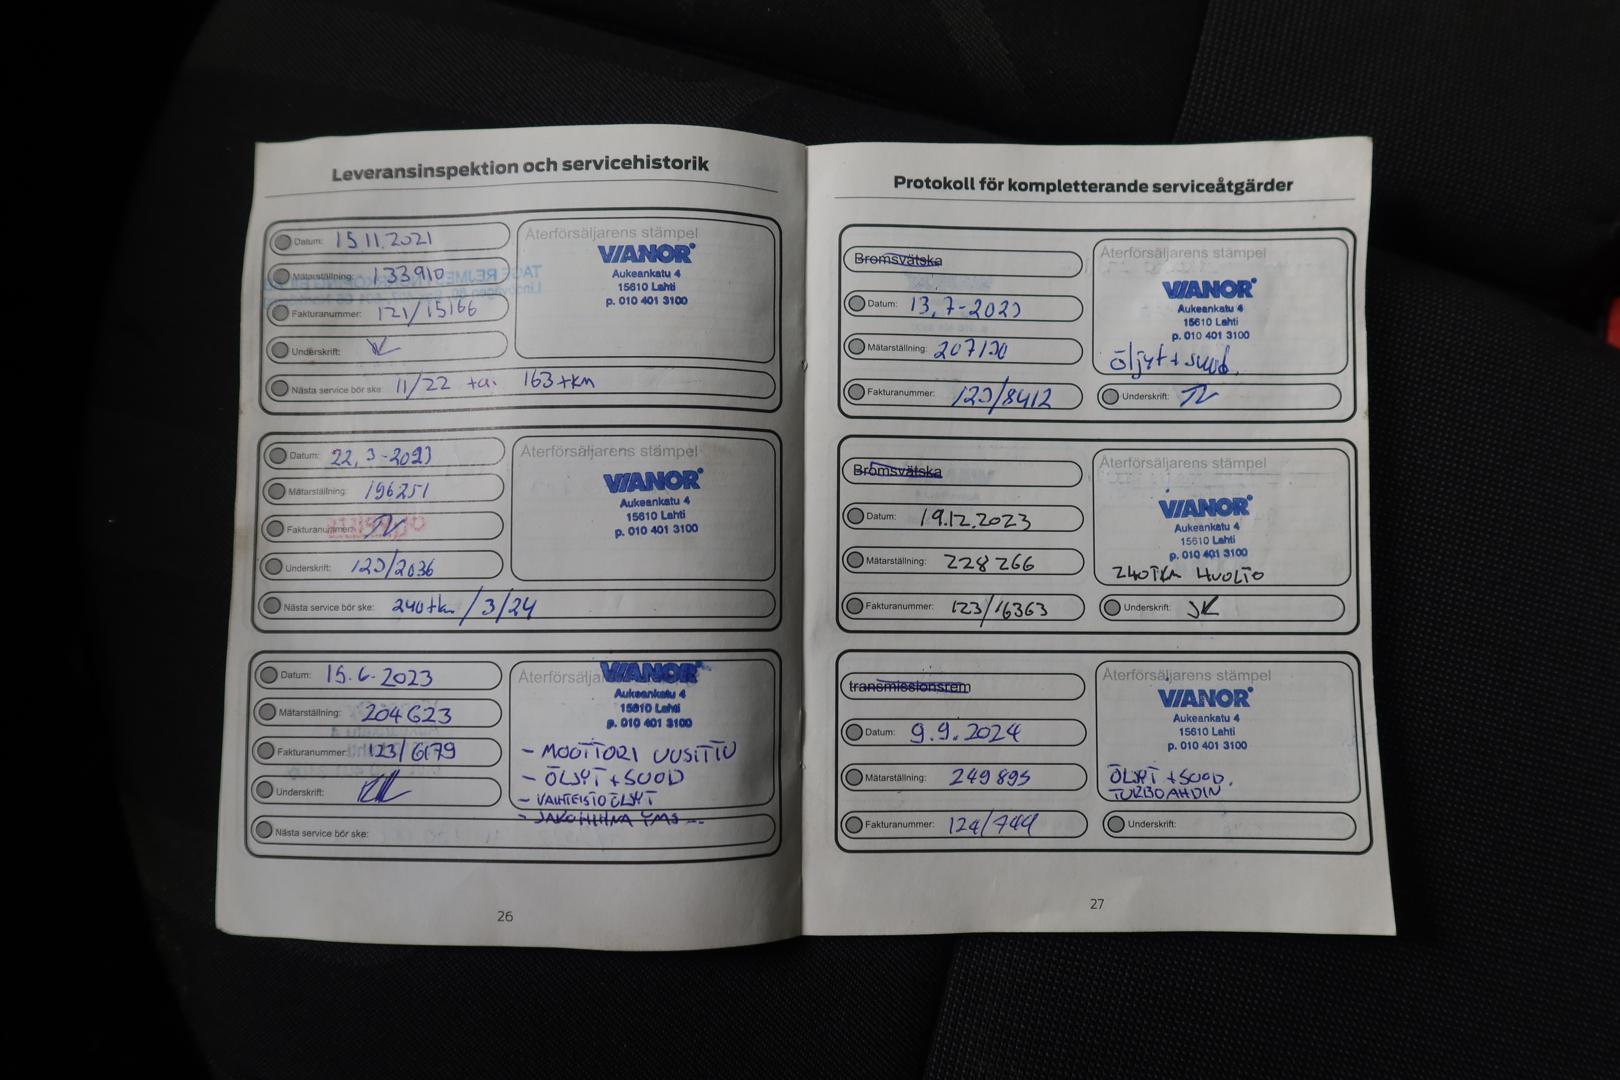 Leveransinspektion och servicehistorik
Datum: 15.11.2021
Mätarställning: 133910
Fakturanummer: 121/15166
Underskrift:
Nästa service bör ske: 11/22 tai 163tkm
Återförsäljarens stämpel
VIANOR
Aukeankatu 4
15610 Lahti
p. 010 401 3100
Datum: 22.3-2023
Mätarställning: 196251
Fakturanummer:
Underskrift: 123/2036
Nästa service bör ske: 240tkm/3/24
Återförsäljarens stämpel
VIANOR
Aukeankatu 4
15610 Lahti
p. 010 401 3100
Datum: 15.6.2023
Mätarställning: 204623
Fakturanummer: 123/6179
Underskrift:
Nästa service bör ske:
VIANOR
Aukeankatu 4
15610 Lahti
p. 010 401 3100
- MOOTTORI UUSITTU
- ÖLJYT + SUOD
- VAIHTEISTOÖLJYT
- JAKOHIHNA YMS...
26
Protokoll för kompletterande serviceåtgärder
Bromsvätska
Datum: 13.7-2023
Mätarställning: 207130
Fakturanummer: 123/8412
Återförsäljarens stämpel
VIANOR
Aukeankatu 4
15610 Lahti
p. 010 401 3100
Öljyt + suod.
Underskrift:
Bromsvätska
Datum: 19.12.2023
Mätarställning: 228266
Fakturanummer: 123/16363
Återförsäljarens stämpel
VIANOR
Aukeankatu 4
15610 Lahti
p. 010 401 3100
240TKM HUOLTO
Underskrift:
transmissionsrem
Datum: 9.9.2024
Mätarställning: 249895
Fakturanummer: 124/744
Återförsäljarens stämpel
VIANOR
Aukeankatu 4
15610 Lahti
p. 010 401 3100
ÖLJYT + SUOD.
TURBOAHDIN
Underskrift:
27